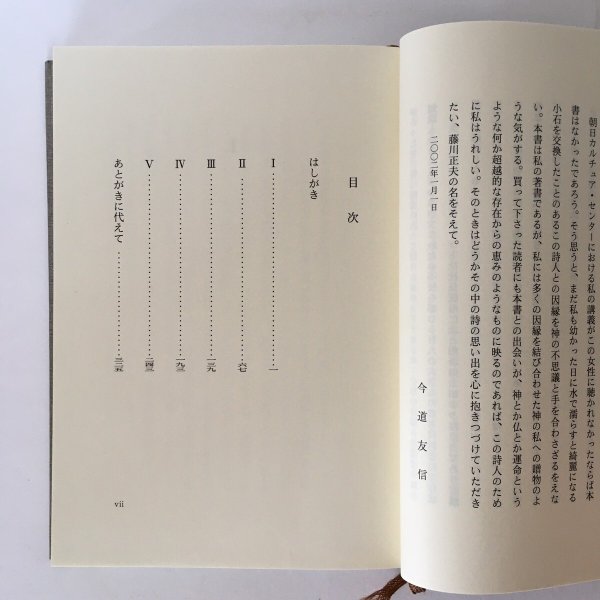 朝日カルチュア・センターにおける私の講義がこの女性に聴かれなかったならば本
書はなかったであろう。そう思うと、まだ私も幼かった日に水で濡らすと綺麗になる
小石を交換したことのあるこの詩人との因縁を神の不思議と手を合わさざるをえな
い。本書は私の著書であるが、私には多くの因縁を結び合わせた神の私への贈物のよ
うな気がする。買って下さった読者にも本書との出会いが、神とか仏とか運命という
ような何か超越的な存在からの恵みのようなものに映るのであれば、この詩人のため
に私はうれしい。そのときはどうかその中の詩の思い出を心に抱きつづけていただき
たい、藤川正夫の名をそえて。
二〇〇二年一月一日
今道友信
目次
はしがき
Ⅰ……一
Ⅱ……六七
Ⅲ……一三九
Ⅳ……一九三
Ⅴ……二四三
あとがきに代えて……三三五
vii